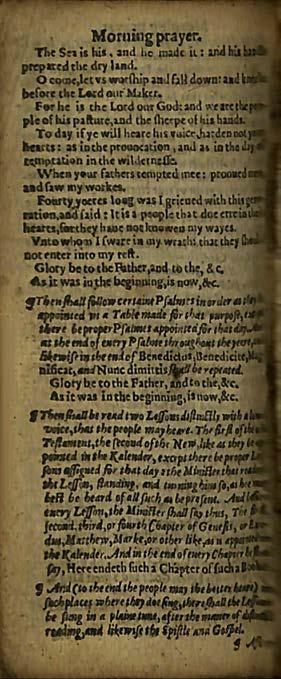 Morning prayer.
The Sea is his, and he made it: and his
prepared the dry land.
O come, let vs worship and fall downe: and
before the Lord our Maker.
For he is the Lord our God: and we are the
ple of his pasture, and the sheepe of his hands.
To day if ye will heare his voice, harden not
hearts: as in the prouocation, and as in the day
temptation in the wildernesse.
When your fathers tempted mee: prooued
and saw my workes.
Fourty yeeres long was I grieued with this
ration, and said: It is a people that doe erre in
hearts, for they haue not knowen my wayes.
Vnto whom I sware in my wrath: that they
not enter into my rest.
Glory be to the Father, and to the, &c.
As it was in the beginning, is now, &c.
¶ Then shall follow certaine Psalmes in order as
appointed in a Table made for that purpose,
there be proper Psalmes appointed for that day.
at the end of euery Psalme throughout the yeere,
likewise in the end of Benedictus, Benedicite,
nificat, and Nunc dimittis shall be repeated.
Glory be to the Father, and to the, &c.
As it was in the beginning, is now, &c.
¶ Then shall be read two Lessons distinctly with a
voice, that the people may heare. The first of the
Testament, the second of the New, like as they be
pointed in the Kalender, except there be proper
sons assigned for that day: the Minister that
the Lesson, standing, and turning him so, as hee
best be heard of all such as be present. And
euery Lesson, the Minister shall say thus, The
second, third, or fourth Chapter of Genesis, or
dus, Matthew, Marke, or other like, as is appointed
the Kalender. And in the end of euery Chapter
say, Here endeth such a Chapter of such a
¶ And (to the end the people may the better heare)
such places where they doe sing, there shall the
be sung in a plaine tune, after the maner of distinct
reading, and likewise the Epistle and Gospel.
¶